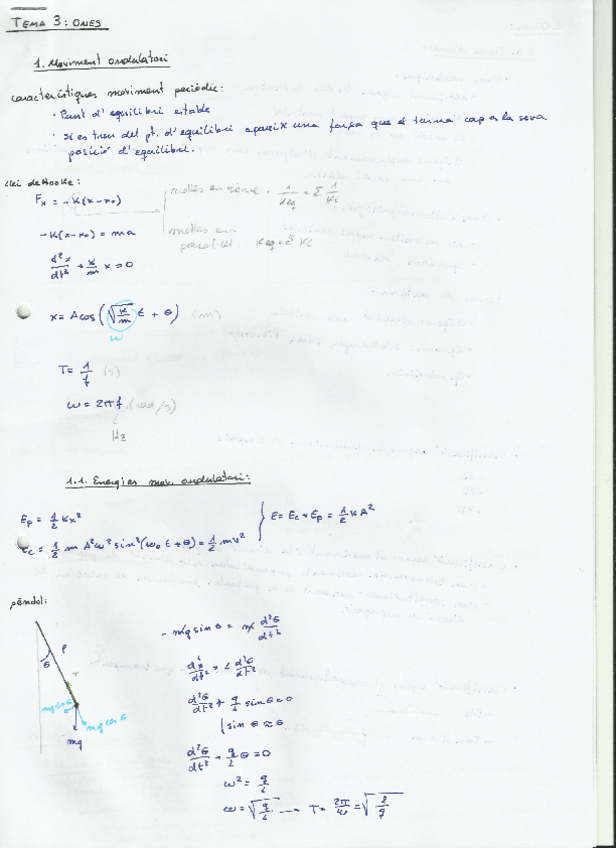 TEMA 3: ONES
1. Moviment ondulatori
característiques moviment periòdic:
· Punt d'equilibri estable
· Si es treu del pt. d'equilibri apareix una força que el torna cap a la seva
posició d'equilibri.
Llei de Hooke:
Fx = -K(x-x0)
molles en serie · 1/Keq = Σ 1/Ki
-K(x-x0) = ma
molles en
paral·lel Keq = Σ Ki
d²x/dt² + K/m x = 0
x = A cos(√(K/m) t + θ) (m)
ω
T = 1/f (s)
ω = 2πf (rad/s)
Hz
1.1. Energies mov. ondulatori:
Ep = 1/2 Kx²
E = Ec + Ep = 1/2 K A²
Ec = 1/2 m A²ω² sin²(ω0 t + θ) = 1/2 mv²
pèndol:
- mg sin θ = m d²θ/dt²
θ
l
T
mg sin θ
mg cos θ
mg
= L d²θ/dt²
d²θ/dt² + g/L sin θ = 0
sin θ ≈ θ
d²θ/dt² + g/L θ = 0
ω² = g/L
ω = √(g/L) → T = 2π/ω = √(l/g)